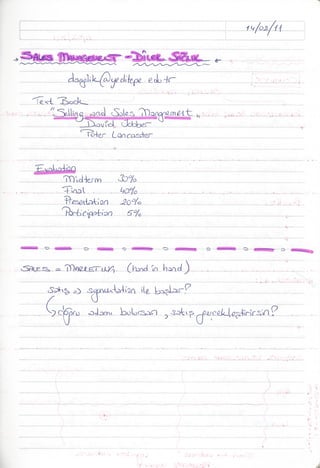 14/02/11
SALES MANAGEMENT - DİLEK SAĞLIK
dsaglik@yeditepe.edu.tr
Text Book
"Selling and Sales Management
David Jobber
Peter Lancaster
Evaluation
Midterm 30%
Final 40%
Presentation 20%
Participation 5%
SALES = MARKETING (hand in hand)
Satış => segmentation ile başlar?
doğru adamı bulursan, satış gerçekleştirirsin?